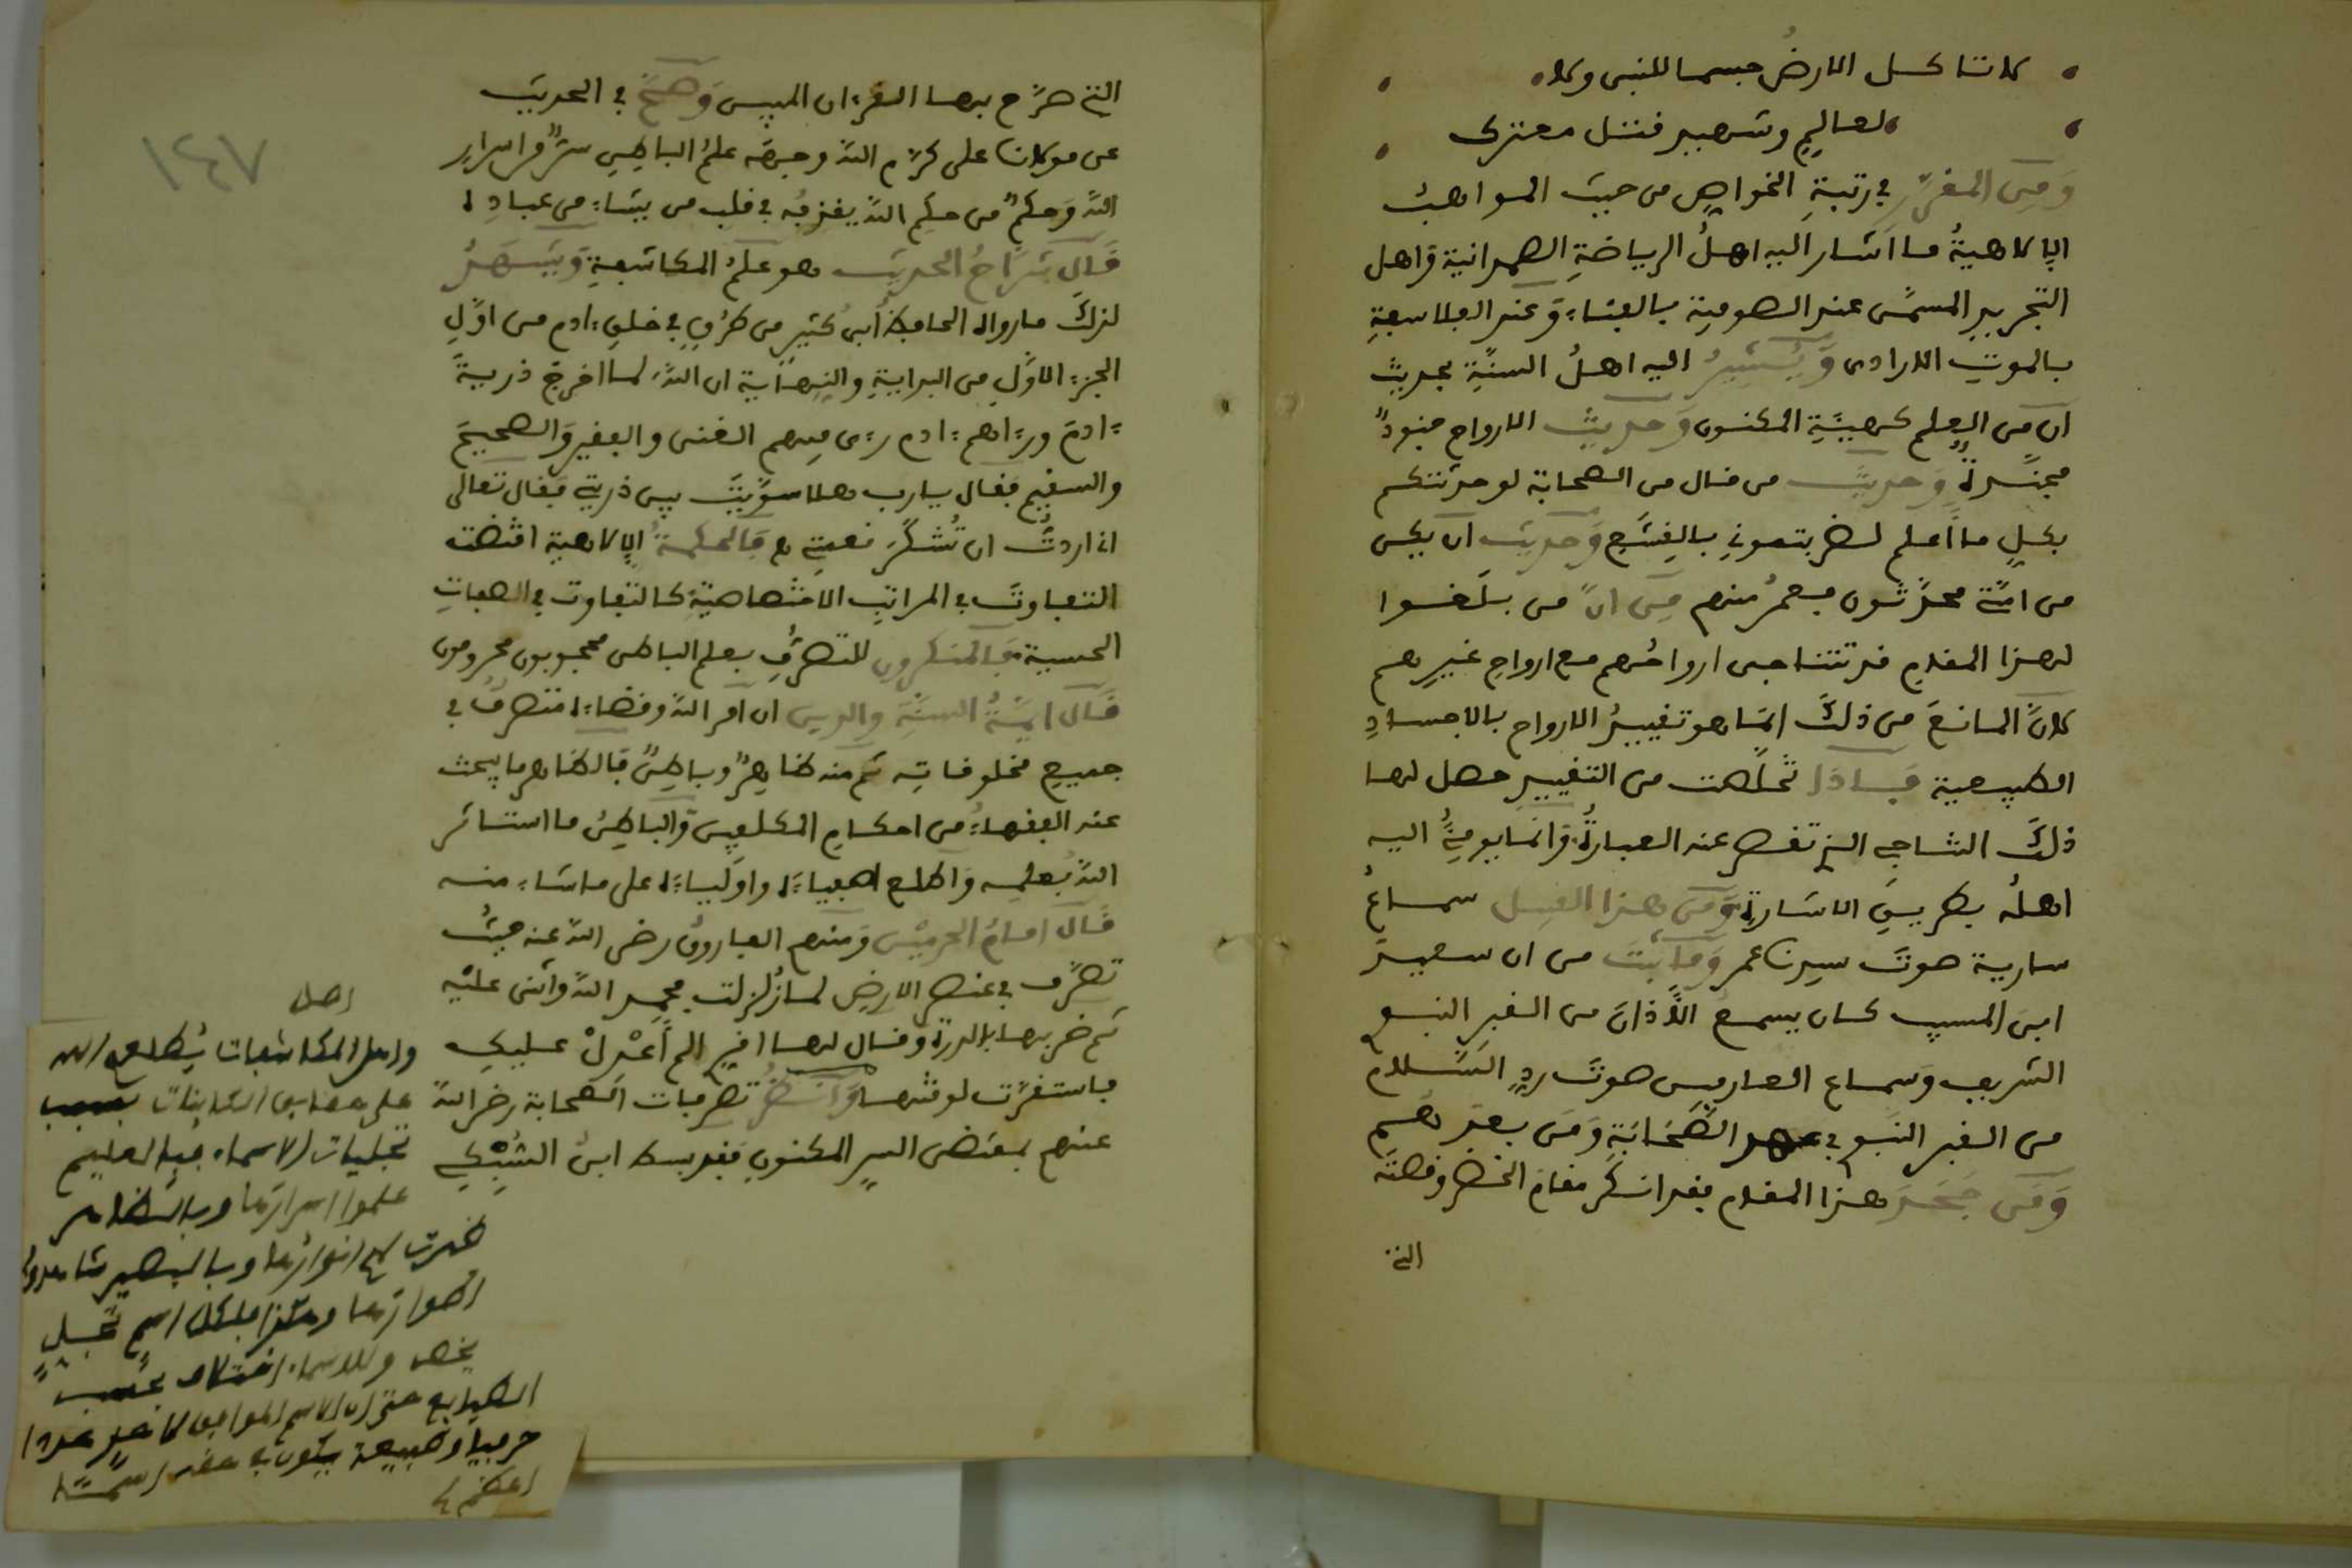 لا تاكل الارض جسما للنبى ولا
لعالم وشهيد قتل معترك
وَمِن المقرر في رتبةِ الخواصِ من حيث المواهب
الالاهيةُ ما اشار اليه اهلُ الرياضةِ الصمدانية واهل
التجريدِ المسمّى عند الصوفية بالفناءِ وعند الفلاسفةِ
بالموتِ الارادى وَيُشِيرُ اليه اهلُ السنّةِ بحديث
ان من العِلم كهيئةِ المكنون وَحديثِ الارواح جنودٌ
مجنّدةٌ وَحديث من قال من الصحابة لو حدثتكم
بكلِ ما اعلم لضربتمونِ بالقِشَعِ وَحديث ان يكن
من امّتي محدَّثون فعمرُ منهم مِن انّ من بلغوا
لهذا المقام قد تتناجى ارواحُهم مع ارواحِ غيرِهم
لانّ المانعَ من ذلكَ انما هو تقييدُ الارواح بالاجسادِ
الطبيعية فاذا تخلّصت من التقييدِ حصل لها
ذلكَ التناجي الذي تقصر عنه العبارةُ وانما يومئُ اليه
اهلُه بطريقِ الاشارةِ وَمن هذا القبيل سماعُ
سارية صوتَ سيدنا عمر وَمَا ثبتَ من ان سعيدَ
ابن المسيب كان يسمعُ الأذانَ من القبرِ النبوِ
الشريف وَسماع العارفين صوتَ ردِّ السَّلامِ
من القبر النبوِ في عهد الصَّحَابَةِ وَمَن بعدهم
وَمَن جَحَدَ هذا المقام فقد انكر مقامَ الخضرِ وقصتَه
التي
التي صرّح بها القرءان المبين وَصحَّ في الحديث
عن مولانا على كرّم الله وجهَه علمُ الباطنِ سرٌّ من اسرارِ
اللهِ وَحكمٌ من حكَمِ الله يقذفُه في قلب من يشاءُ من عبادِه
قال شرّاحُ الحديث هو علمُ المكاشفةِ وَيَشهَدُ
لذلكَ ما رواه الحافظُ ابن كثيرٍ من طرُقٍ في خلقِ ءادم من اوّلِ
الجزءِ الاوّلِ من البدايةِ والنِهايةِ ان اللهَ لما اخرجَ ذريةَ
ءادمَ وراءهم ءادم رءى فيهم الغنى والفقيرَ والصحيحَ
والسقيمَ فقال يارب هلا سوّيتَ بين ذريتي فقال تعالى
اني اردتُ ان تُشكَرَ نعمتي فالحكمةُ الالاهيةُ اقتضت
التفاوتَ في المراتبِ الاختصاصيّةِ كالتفاوت في الهباتِ
الحسيةِ فالمنكرون للتصرّفِ بعلم الباطن محجوبون محرومون
قال ائمّةُ السنّةِ والدين ان امر الله وقضاءَه متصرفٌ في
جميع مخلوقاتِه ثم منه ظاهِرٌ وباطِنٌ فالظاهر ما يبحث
عنه الفقهاءُ من احكامِ المكلفين وَالباطِنُ ما استاثر
اللهُ بعلمِه وَاطلع اصفياءَه واوليَاءَه على ما شاءَ منه
قال امامُ الحرمَيْن وَمنهم الفاروقُ رضى الله عنه حيثُ
تصرَّف في عنصر الارضِ لما زُلزلت فحمِد اللهَ وأثنى عليْه
ثم ضربها بالدرةِ وقال لها اقري الم أَعْدِلْ عليكِ
فاستقرّت لوقتها وَانظُر تصرفات الصحابة رضي الله
عنهم بمقتضى السرِ المكنونِ فقد بسط ابنُ السُّبْكِي
اصل
واهل المكاشفات يُطلعهم الله
على حقايق الكاينات بسبب
تجليات الاسماء فبالعليم
علموا اسرارَها وبالظاهر
ظهرت لهم انوارُها وبالبصير شاهدوا
اطوارَها وهكذا فلكل اسمٍ تجلٍ
يخصه وللاسماء اختلاف بحسب
الطبايع حتى ان الاسم الموافق
حرفيا وطبيعة يكون في حقه اسما
اعظم
١٤٧